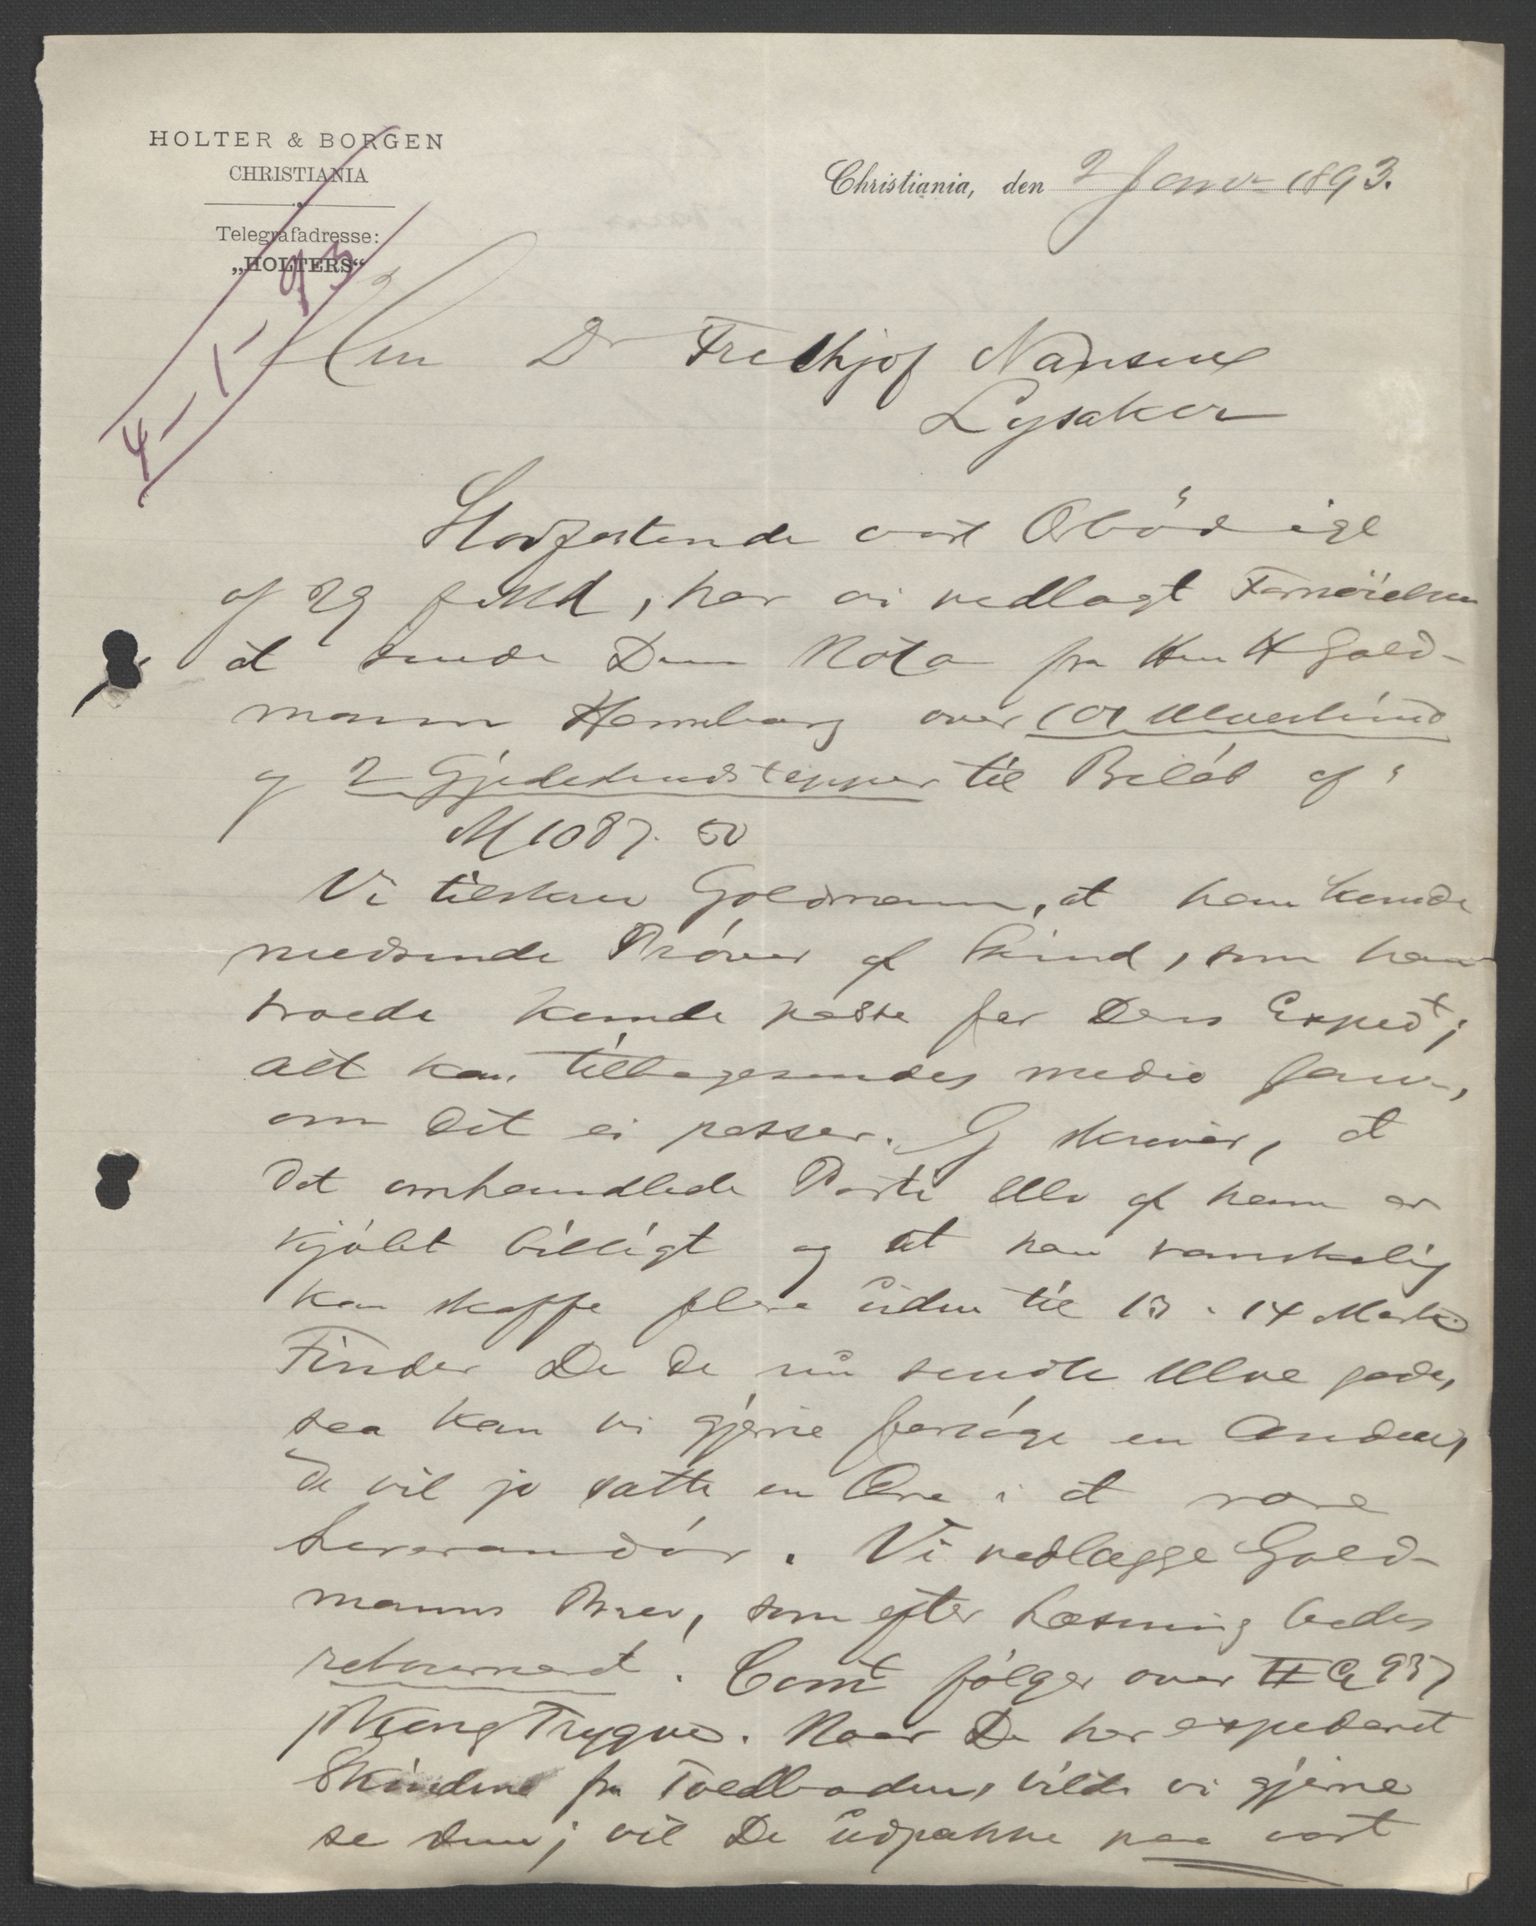 HOLTER & BORGEN
CHRISTIANIA
Telegrafadresse:
„HOLTERS“
4-1-93
Christiania, den 2 Janr 1893.
Herr Dr Fredhjof Nansen
Lysaker
Stadfæstende vort Ærbødige
af 29 f Md, har vi vedlagt Fornøielsen
at sende Dem Nota fra Herr H Gold-
mann Hamburg over 101 Ulveskind
og 2 Gjedeskindstepper til Beløb af
M 1087. 50
Vi tilskrev Goldmann, at han kunde
medsende Prøver af Skind, som han
troede kunde passe for Deres Expedt;
alt kan tilbagesendes medio Janr,
om det ei passer. G skriver, at
det omhandlede Parti Ulv af ham er
kjøbt billigt og at han vanskelig
kan skaffe flere uden til 13 - 14 Mark
Finder De de nu sendte Ulve gode,
saa kan vi gjerne forsøge en Anden,
de vil jo sætte en Ære i at være
Leverandør. Vi vedlægge Gold-
manns Brev, som efter Læsning bedes
retourneret. Contt følger over HG 937
p Kong Trygve. Naar De har expederet
Skindene fra Toldboden, vilde vi gjerne
se dem; vil De udpakke paa vort